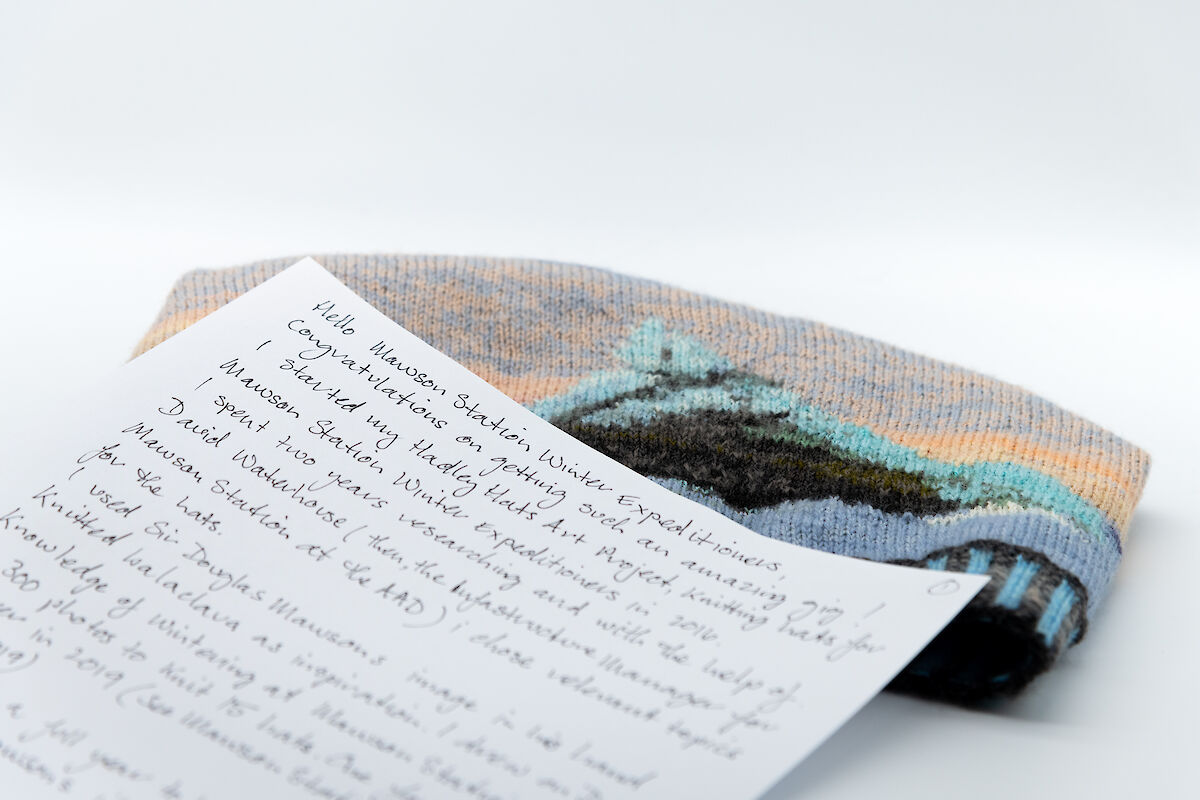 ①
Hello Mawson Station Winter Expeditioners,
Congratulations on getting such an amazing gig!
I started my Hadley Hats Art Project, Knitting hats for
Mawson Station Winter Expeditioners in 2016.
I spent two years researching and with the help of
David Waterhouse (then the Infrastructure Manager for
Mawson Station at the AAD) I chose relevant topics
for the hats.
I used Sir Douglas Mawson's image in his hand
Knitted balaclava as inspiration. I drew on
Knowledge of wintering at Mawson Station
300 photos to knit 15 hats. One
in 2019 (See Mawson Station
a full year to